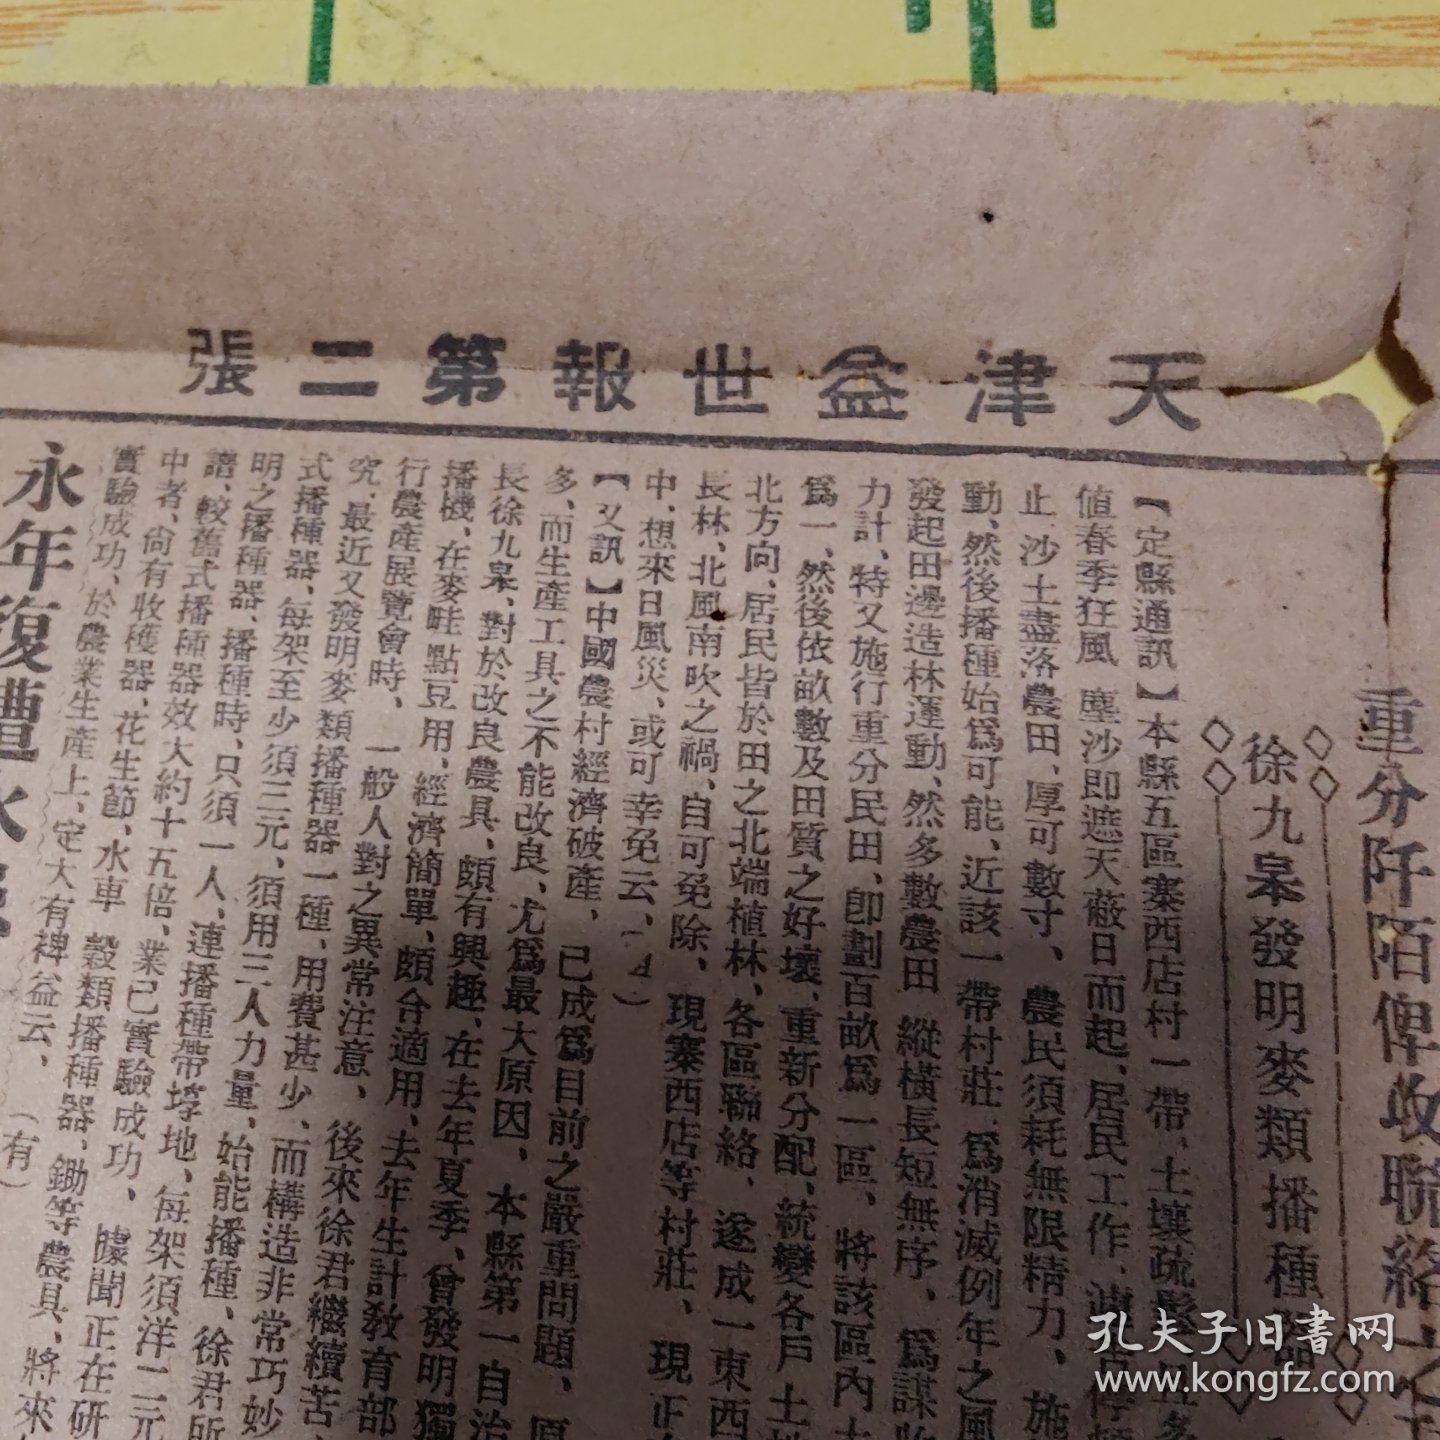 天津益世報第二張
重分阡陌俾收聯絡之
徐九皋發明麥類播種器
【定縣通訊】本縣五區寨西店村一帶、土壤疏鬆
值春季狂風　塵沙即遮天蔽日而起、居民工作
止　沙土盡落農田、厚可數寸、　農民須耗無限精力、　施
動、然後播種始爲可能、近該一帶村莊、爲消滅例年之風
發起田邊造林運動、然多數農田　縱橫長短無序、　爲謀
力計、特又施行重分民田、卽劃百畝爲一區、　將該區內土
爲一、然後依畝數及田質之好壞、重新分配、統變各戶土地
北方向、居民皆於田之北端植林、各區聯絡、　遂成一東西
長林、北風南吹之禍、自可免除、　現寨西店等村莊、　現正
中、想來日風災、或可幸免云、
【又訊】中國農村經濟破產、　已成爲目前之嚴重問題、　原
多、而生產工具之不能改良、尤爲最大原因、　本縣第一自治
長徐九皋、對於改良農具、頗有興趣、在去年夏季、曾發明獨
播機、在麥畦點豆用、經濟簡單、頗合適用、去年生計教育部
行農產展覽會時、　一般人對之異常注意、　後來徐君繼續苦
究、最近又發明麥類播種器一種、用費甚少、而構造非常巧妙
式播種器、每架至少須三元、須用三人力量、始能播種、徐君所
明之播種器、播種時、只須一人、連播種帶埻地、每架須洋二元
譜、較舊式播種器效大約十五倍、業已實驗成功、　據聞正在研
中者、尙有收穫器、花生節、水車　穀類播種器、鋤等農具、將來
實驗成功、於農業生產上、定大有裨益云、　（有）
永年復遭水